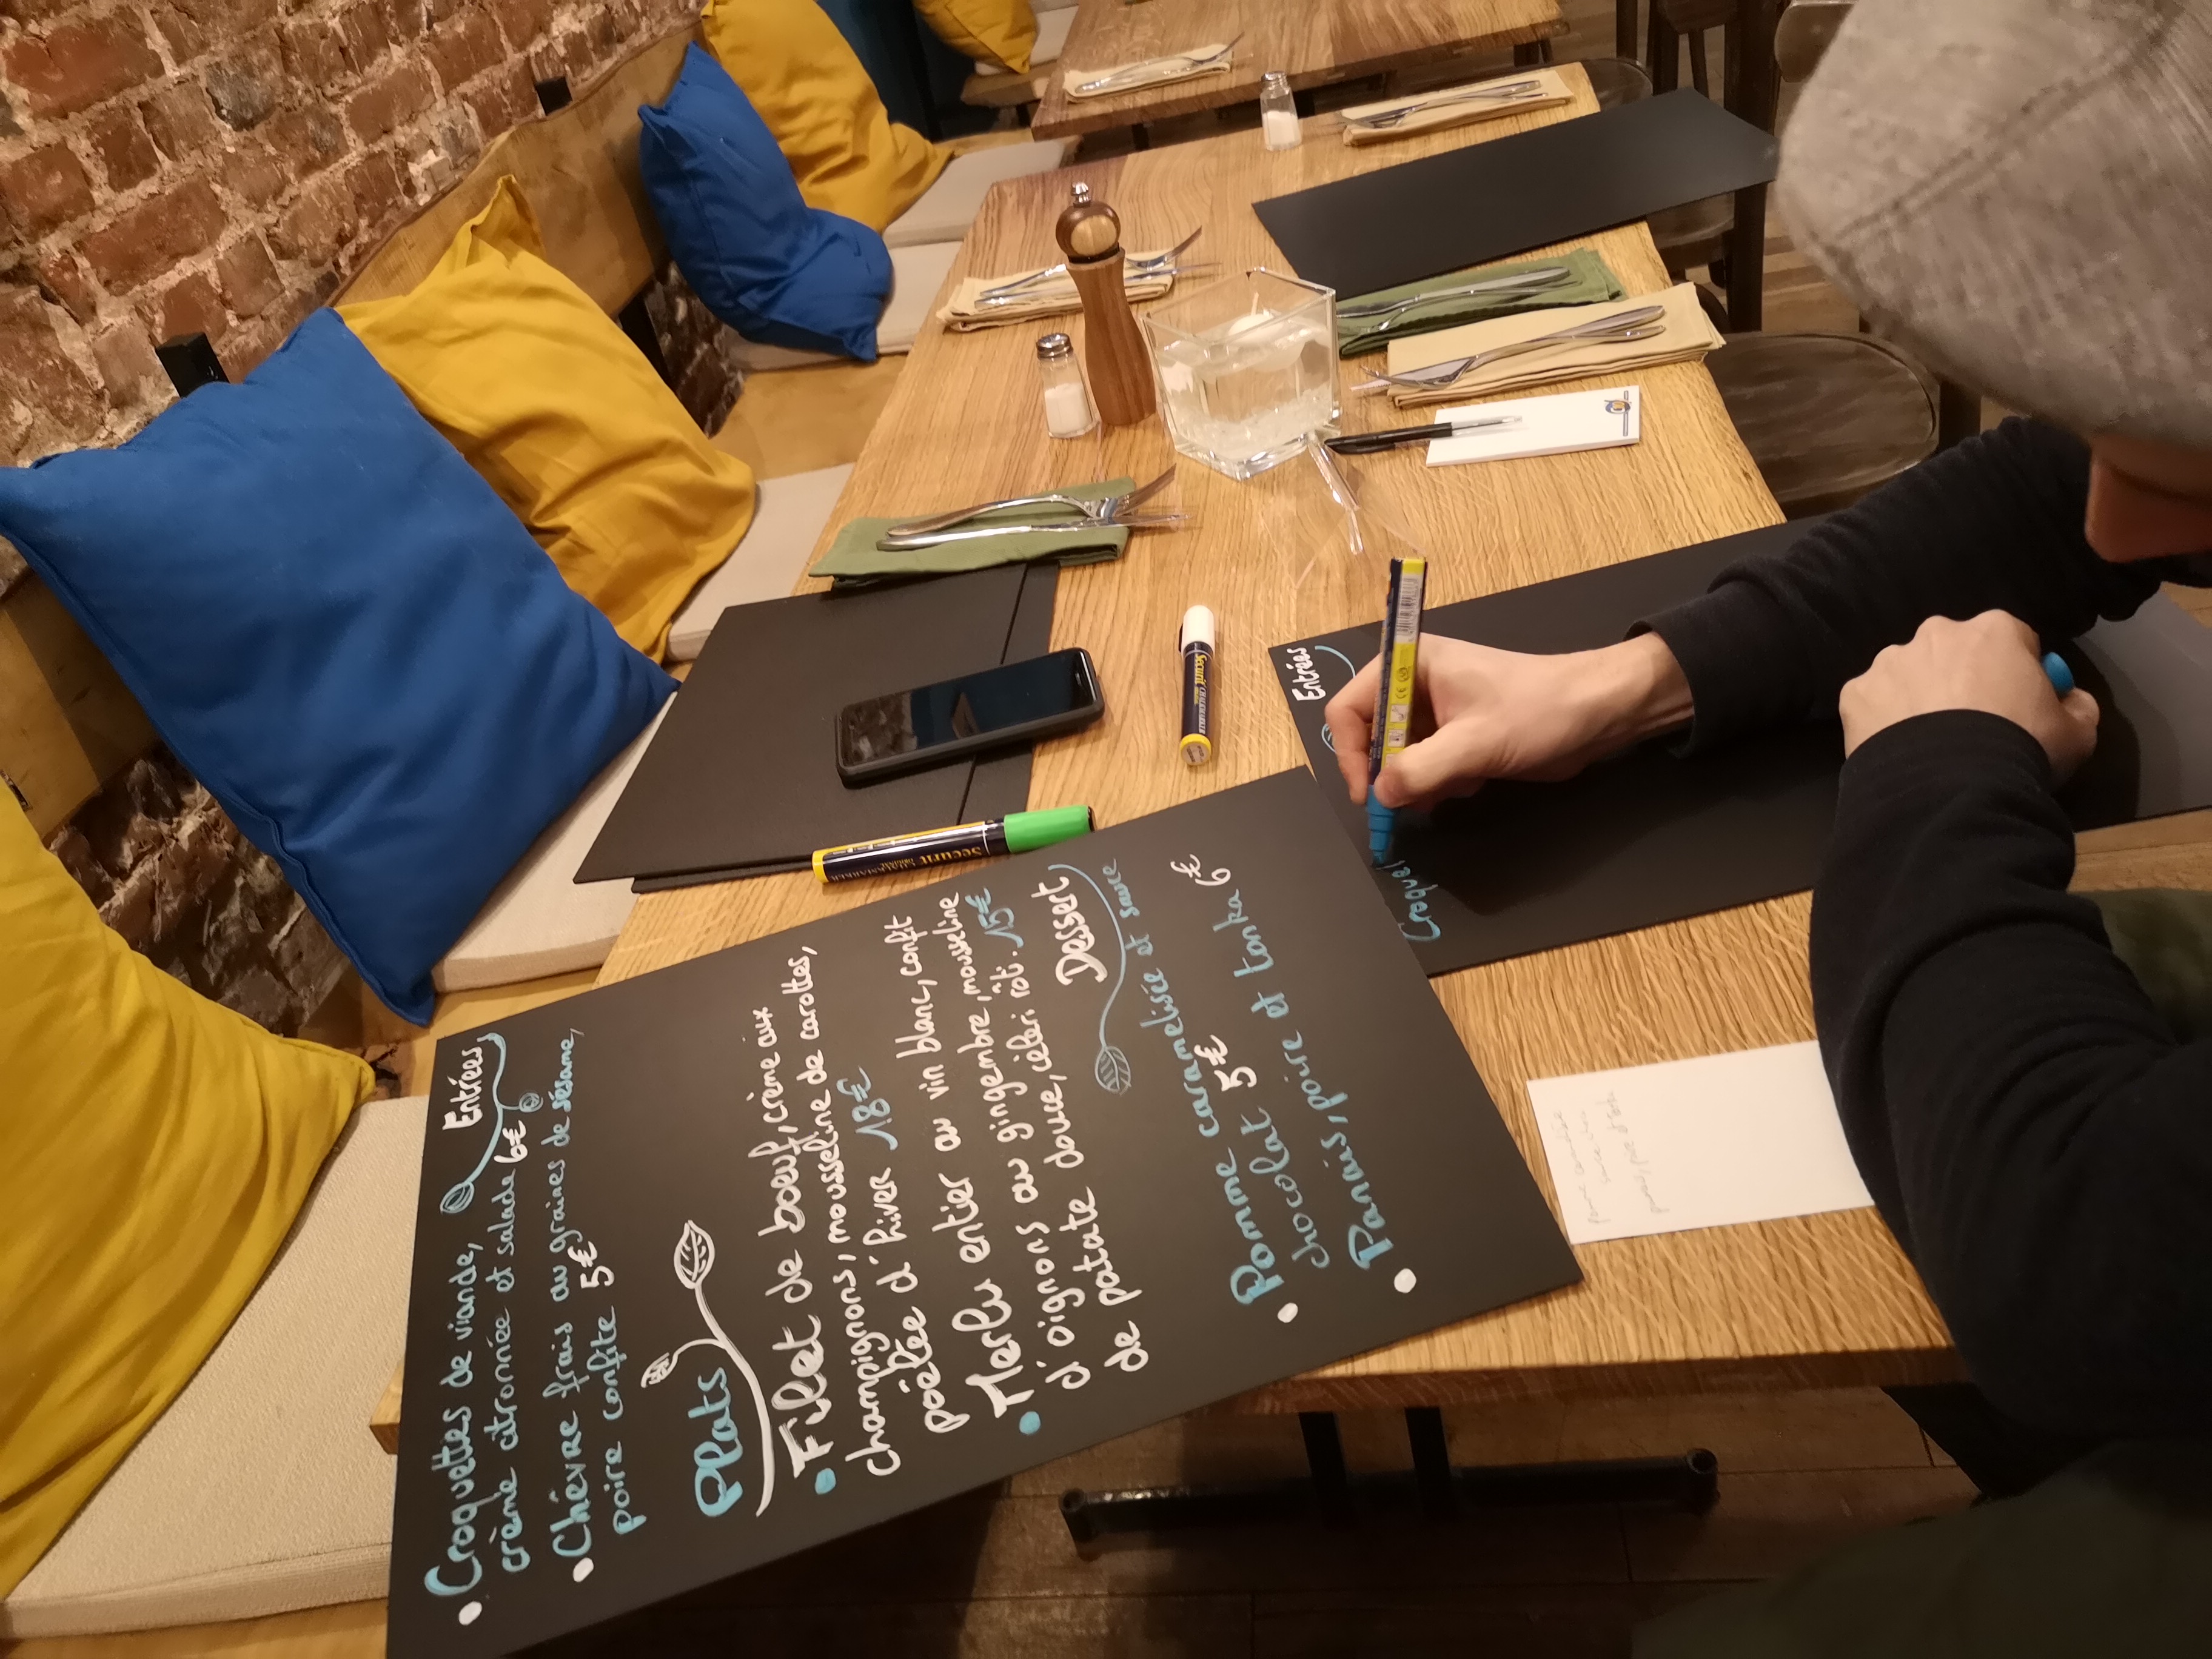 Entrées
Croquettes de viande,
crème citronnée et salade 6€
Chèvre frais au graines de sésame,
poire confite 5€
Plats
Filet de boeuf, crème aux
champignons, mousseline de carottes,
poêlée d'hiver 18€
Merlu entier au vin blanc, confit
d'oignons au gingembre, mousseline
de patate douce, céleri rôti. 15€
Dessert
Pomme caramelisée et sauce
chocolat 5€
Panais, poire et tonka 6€
Entrées
Croquet
Securit
Securit